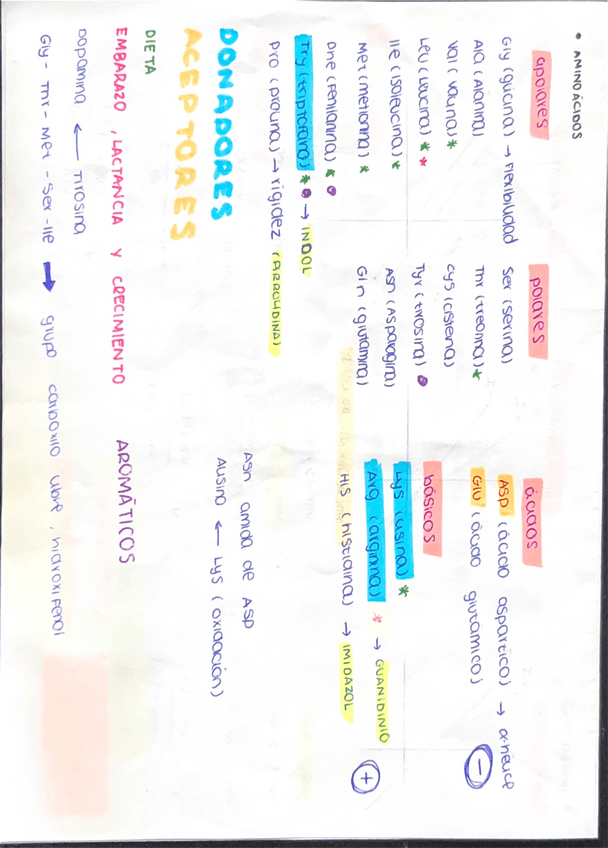 • AMINOÁCIDOS
apolares
Gly (glicina) → Flexibilidad
Ala (Alanina)
Val (valina) *
Leu (Leucina) * *
Ile (Isoleucina) *
Met (metionina) *
Phe (Fenilanina) *
Try (triptófano) * → INDOL
Pro (prolina) → rigidez (PIRROLIDINA)
polares
Ser (serina)
Thr (treonina) *
Cys (cisteína)
Tyr (tirosina)
Asn (Asparagina)
Gln (glutamina)
ácidos
ASP (ácido aspártico) → α-hélice
Glu (ácido glutámico)
−
básicos
Lys (lisina) *
Arg (arginina) * → GUANIDINIO
His (histidina) → IMIDAZOL
+
Asn amida de ASP
Alisina ← Lys (oxidación)
DONADORES
ACEPTORES
DIETA
EMBARAZO, LACTANCIA Y CRECIMIENTO
AROMÁTICOS
Dopamina ← Tirosina
Gly - Thr - Met - Ser - Ile → grupo carboxilo libre, hidroxifenol